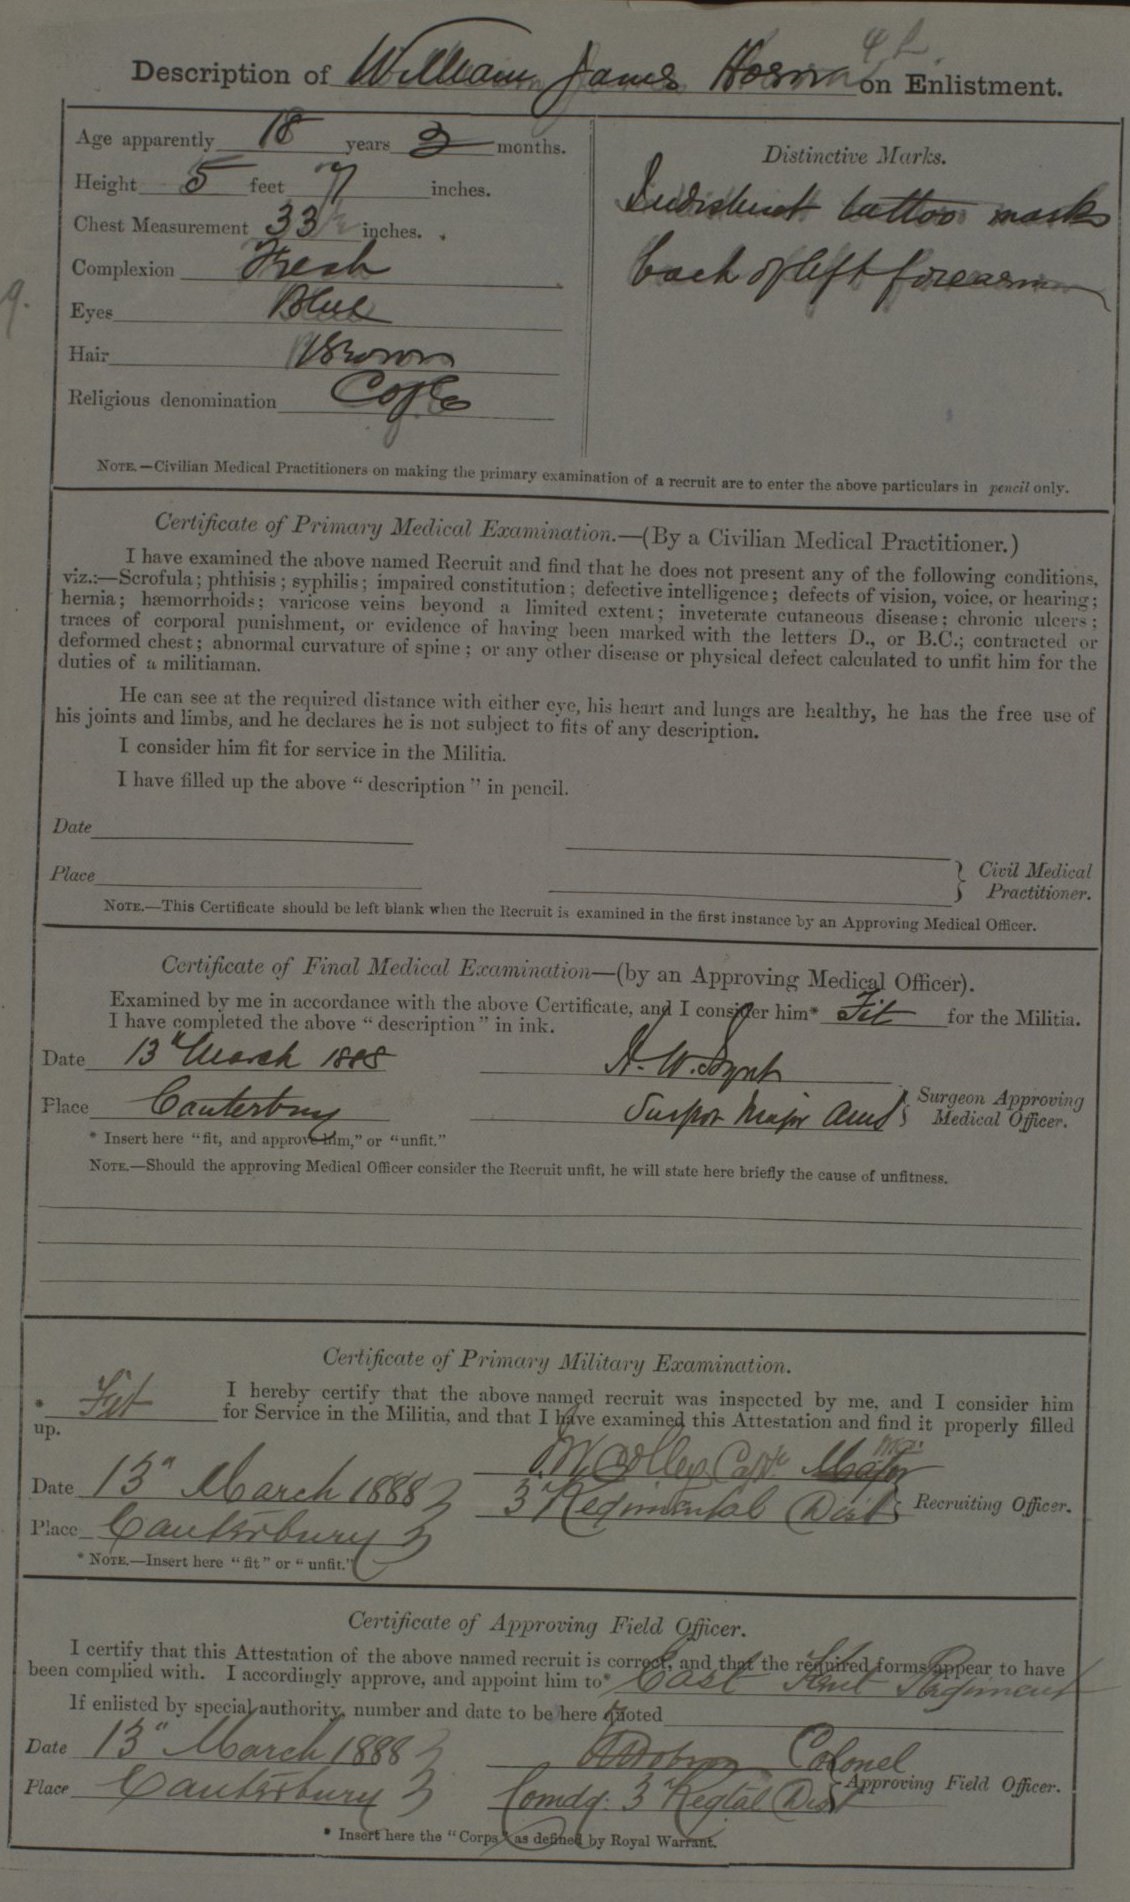 Description of William James on Enlistment.
Age apparently 18 years 3 months.
Height 5 feet 7 inches.
Chest Measurement 33 inches.
Complexion Fresh
Eyes Blue
Hair Brown
Religious denomination C of E
Distinctive Marks.
Indistinct tattoo marks
back of left forearm
NOTE.—Civilian Medical Practitioners on making the primary examination of a recruit are to enter the above particulars in pencil only.
Certificate of Primary Medical Examination.—(By a Civilian Medical Practitioner.)
I have examined the above named Recruit and find that he does not present any of the following conditions,
viz.:—Scrofula; phthisis; syphilis; impaired constitution; defective intelligence; defects of vision, voice, or hearing;
hernia; hæmorrhoids; varicose veins beyond a limited extent; inveterate cutaneous disease; chronic ulcers;
traces of corporal punishment, or evidence of having been marked with the letters D., or B.C.; contracted or
deformed chest; abnormal curvature of spine; or any other disease or physical defect calculated to unfit him for the
duties of a militiaman.
He can see at the required distance with either eye, his heart and lungs are healthy, he has the free use of
his joints and limbs, and he declares he is not subject to fits of any description.
I consider him fit for service in the Militia.
I have filled up the above “description” in pencil.
Date
Place
Civil Medical
Practitioner.
NOTE.—This Certificate should be left blank when the Recruit is examined in the first instance by an Approving Medical Officer.
Certificate of Final Medical Examination—(by an Approving Medical Officer).
Examined by me in accordance with the above Certificate, and I consider him* Fit for the Militia.
I have completed the above “description” in ink.
Date 13" March 1888
Place Canterbury
Major
Surgeon Approving
Medical Officer.
* Insert here “fit, and approve him,” or “unfit.”
NOTE.—Should the approving Medical Officer consider the Recruit unfit, he will state here briefly the cause of unfitness.
Certificate of Primary Military Examination.
* Fit I hereby certify that the above named recruit was inspected by me, and I consider him
for Service in the Militia, and that I have examined this Attestation and find it properly filled
up.
Major
Date 13" March 1888
3 Regimental Dist Recruiting Officer.
Place Canterbury
* NOTE.—Insert here “fit” or “unfit.”
Certificate of Approving Field Officer.
I certify that this Attestation of the above named recruit is correct, and that the required forms appear to have
been complied with. I accordingly approve, and appoint him to* East Kent Regiment
If enlisted by special authority, number and date to be here quoted
Date 13" March 1888
Colonel
Place Canterbury
Comdg. 3 Regtal Dist Approving Field Officer.
* Insert here the “Corps” as defined by Royal Warrant.